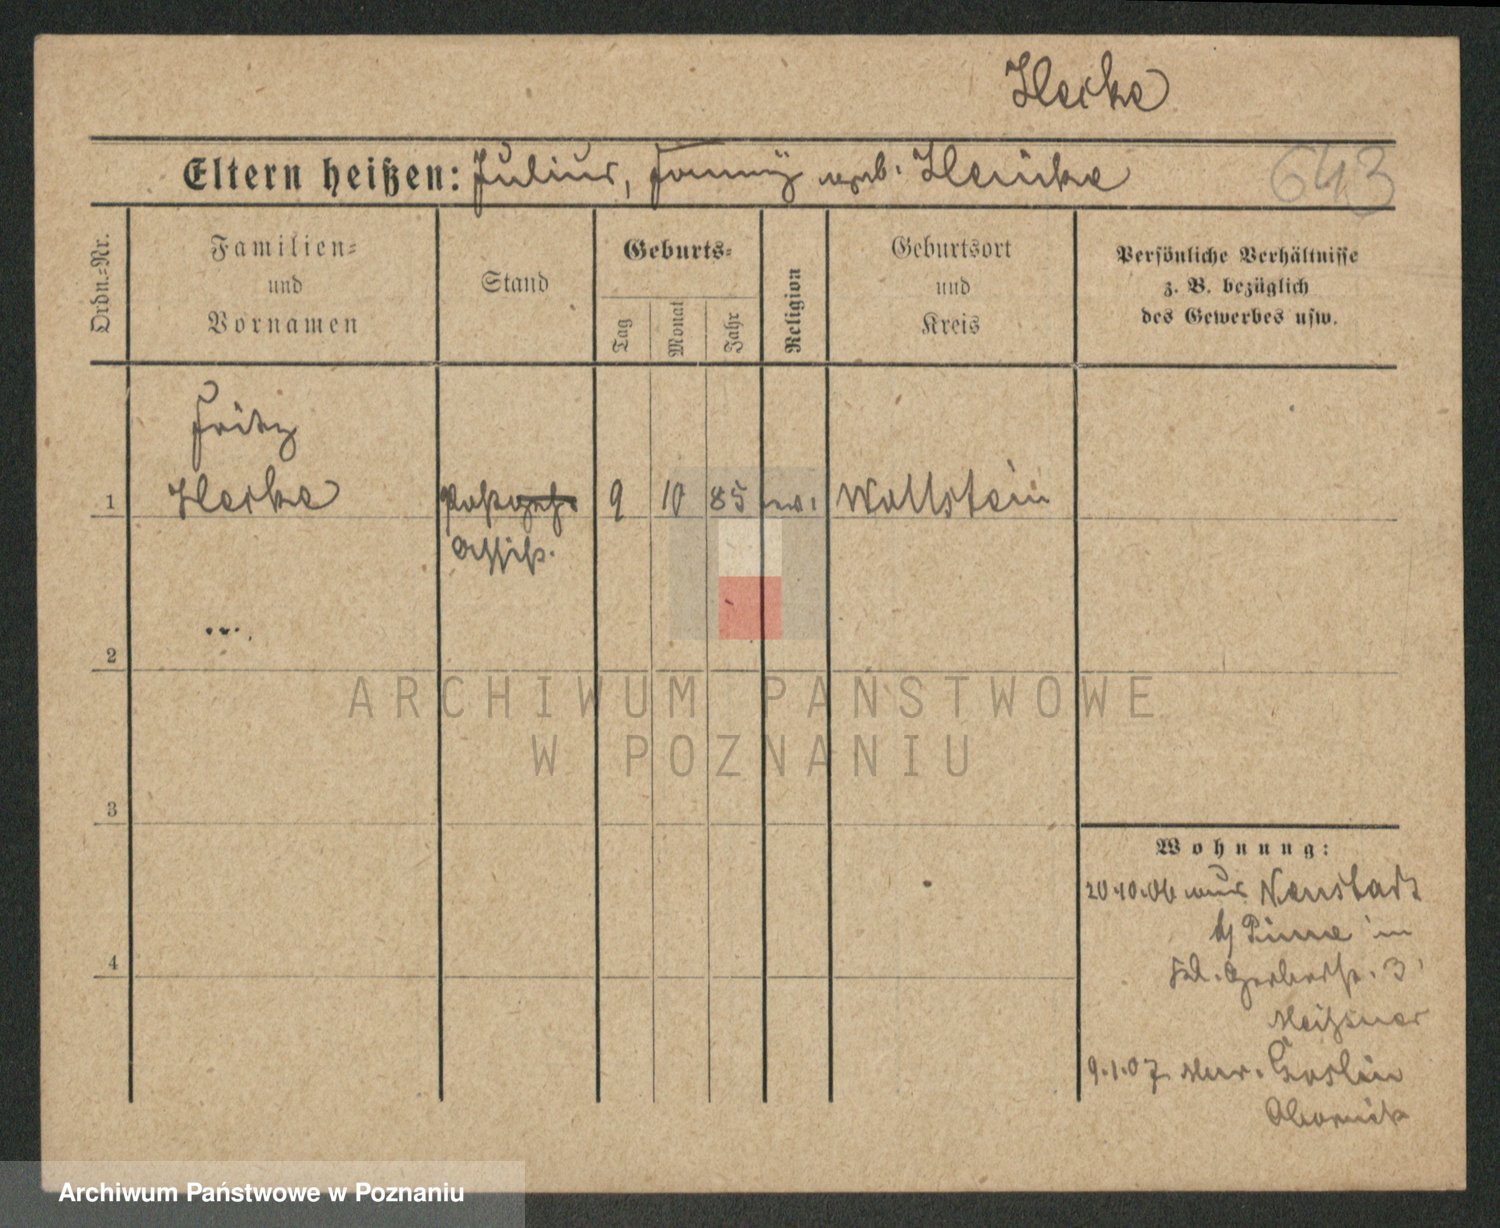 Hecke
Eltern heißen: Julius, Fanny geb. Henicke
643
Ordn.-Nr.
Familien-
und
Vornamen
Stand
Geburts-
Tag
Monat
Jahr
Religion
Geburtsort
und
Kreis
Persönliche Verhältnisse
z. B. bezüglich
des Gewerbes usw.
Fritz
1 Hecke Postgeh. 9 10 85 ev. Wollstein
Assist.
2
3
4
Wohnung:
20.10.06 aus Neustadt
b/ Pinne in
Kl. Gerberstr. 3
Meißner
9.1.07 Mur. Goslin
Obornik
ARCHIWUM PAŃSTWOWE
W POZNANIU
Archiwum Państwowe w Poznaniu